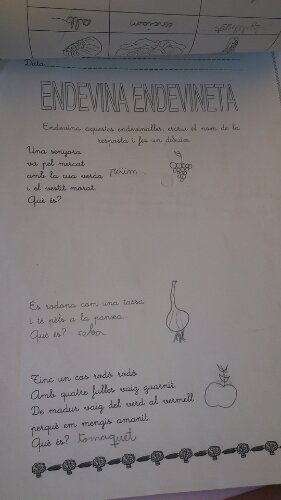 Data
ENDEVINA ENDEVINETA
Endevina aquestes endevinalles, escriu el nom de la
resposta i fes un dibuix.
Una senyora
va pel mercat
amb la cua verda
i el vestit morat.
Què és?
raïm
És rodona com una tassa
i té pèls a la panxa.
Què és? ceba
Tinc un cos rodó rodó
Amb quatre fulles vaig guarnit.
De madur vaig del verd al vermell
perquè em mengis amanit.
Què és? tomaquet